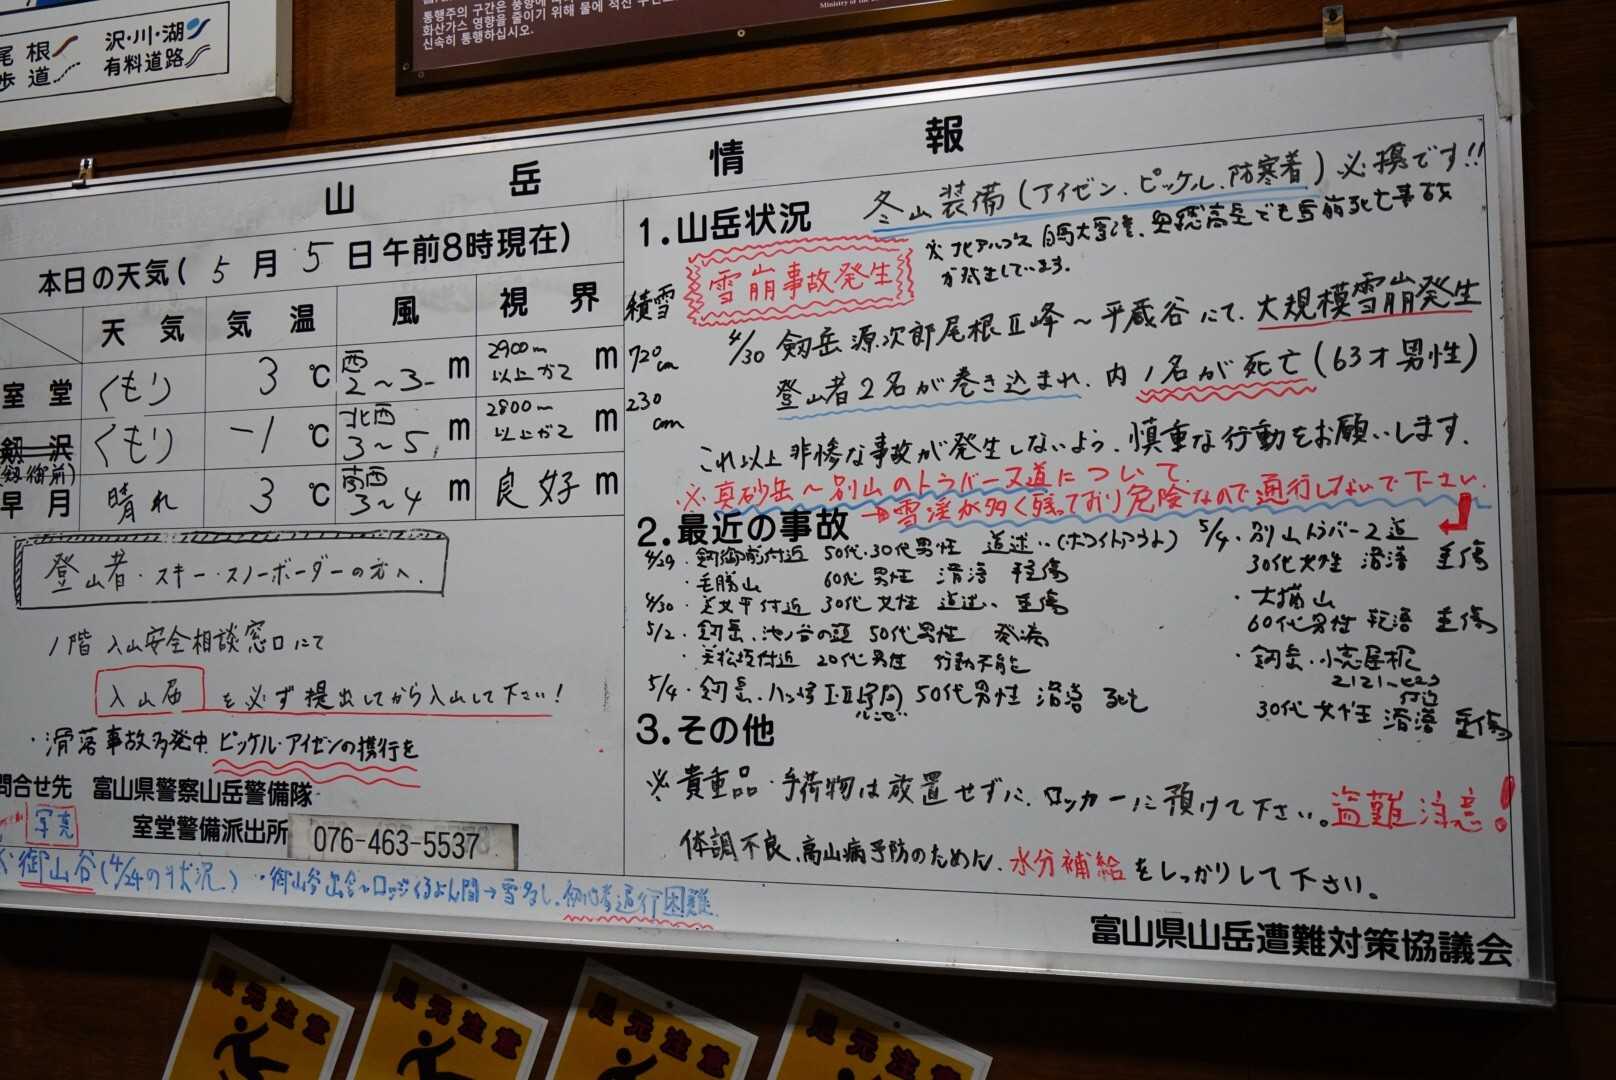 尾根
沢・川・湖
歩道
有料道路
통행주의 구간은 풍향에
화산가스 영향을 줄이기 위해 물에 적신
신속히 통행하십시오.
Ministry of the
山岳情報
本日の天気(5月5日午前8時現在)
天気 気温 風 視界 積雪
室堂 くもり 3℃ 西2～3m 2900m以上ガスm 720cm
剱沢(剱御前) くもり -1℃ 北西3～5m 2800m以上ガスm 230cm
早月 晴れ 3℃ 南西3～4m 良好m
登山者・スキー・スノーボーダーの方へ.
1階 入山安全相談窓口にて
入山届を必ず提出してから入山して下さい!
・滑落事故多発中.ピッケル・アイゼンの携行を
問合せ先 富山県警察山岳警備隊
室堂警備派出所 076-463-5537
写真
御山谷(4/24の状況)・御山谷出合～ロッジくろよん間→雪なし.初心者通行困難.
1.山岳状況
冬山装備(アイゼン.ピッケル.防寒着)必携です!!
雪崩事故発生
※北アルプス 白馬大雪渓、奥穂高岳でも雪崩死亡事故
が発生しています.
4/30 剱岳源次郎尾根Ⅱ峰～平蔵谷にて.大規模雪崩発生
登山者2名が巻き込まれ.内1名が死亡(63才男性)
これ以上非惨な事故が発生しないよう.慎重な行動をお願いします.
※真砂岳～別山のトラバース道について
→雪渓が多く残っており危険なので通行しないで下さい.
2.最近の事故
4/29.剱御前付近 50代・30代男性 道迷い(ホワイトアウト)
・毛勝山 60代男性 滑落 重傷
4/30.天女平付近 30代女性 道迷い 重傷
5/2.剱岳.池ノ谷の頭 50代男性 発病
・天狗坂付近 20代男性 行動不能
5/4.剱岳.八ッ峰Ⅰ・Ⅱ峰間ルンゼ 50代男性 滑落 死亡
5/4.別山トラバース道
30代女性 滑落 重傷
・大猫山
60代男性 転落 重傷
・剱岳.小窓尾根
2121mピーク付近
30代女性 滑落 重傷
3.その他
※貴重品・手荷物は放置せずに.ロッカーに預けて下さい。盗難注意!
体調不良、高山病予防のため.水分補給をしっかりして下さい。
富山県山岳遭難対策協議会
足元注意
足元注意
足元注意
足元注意